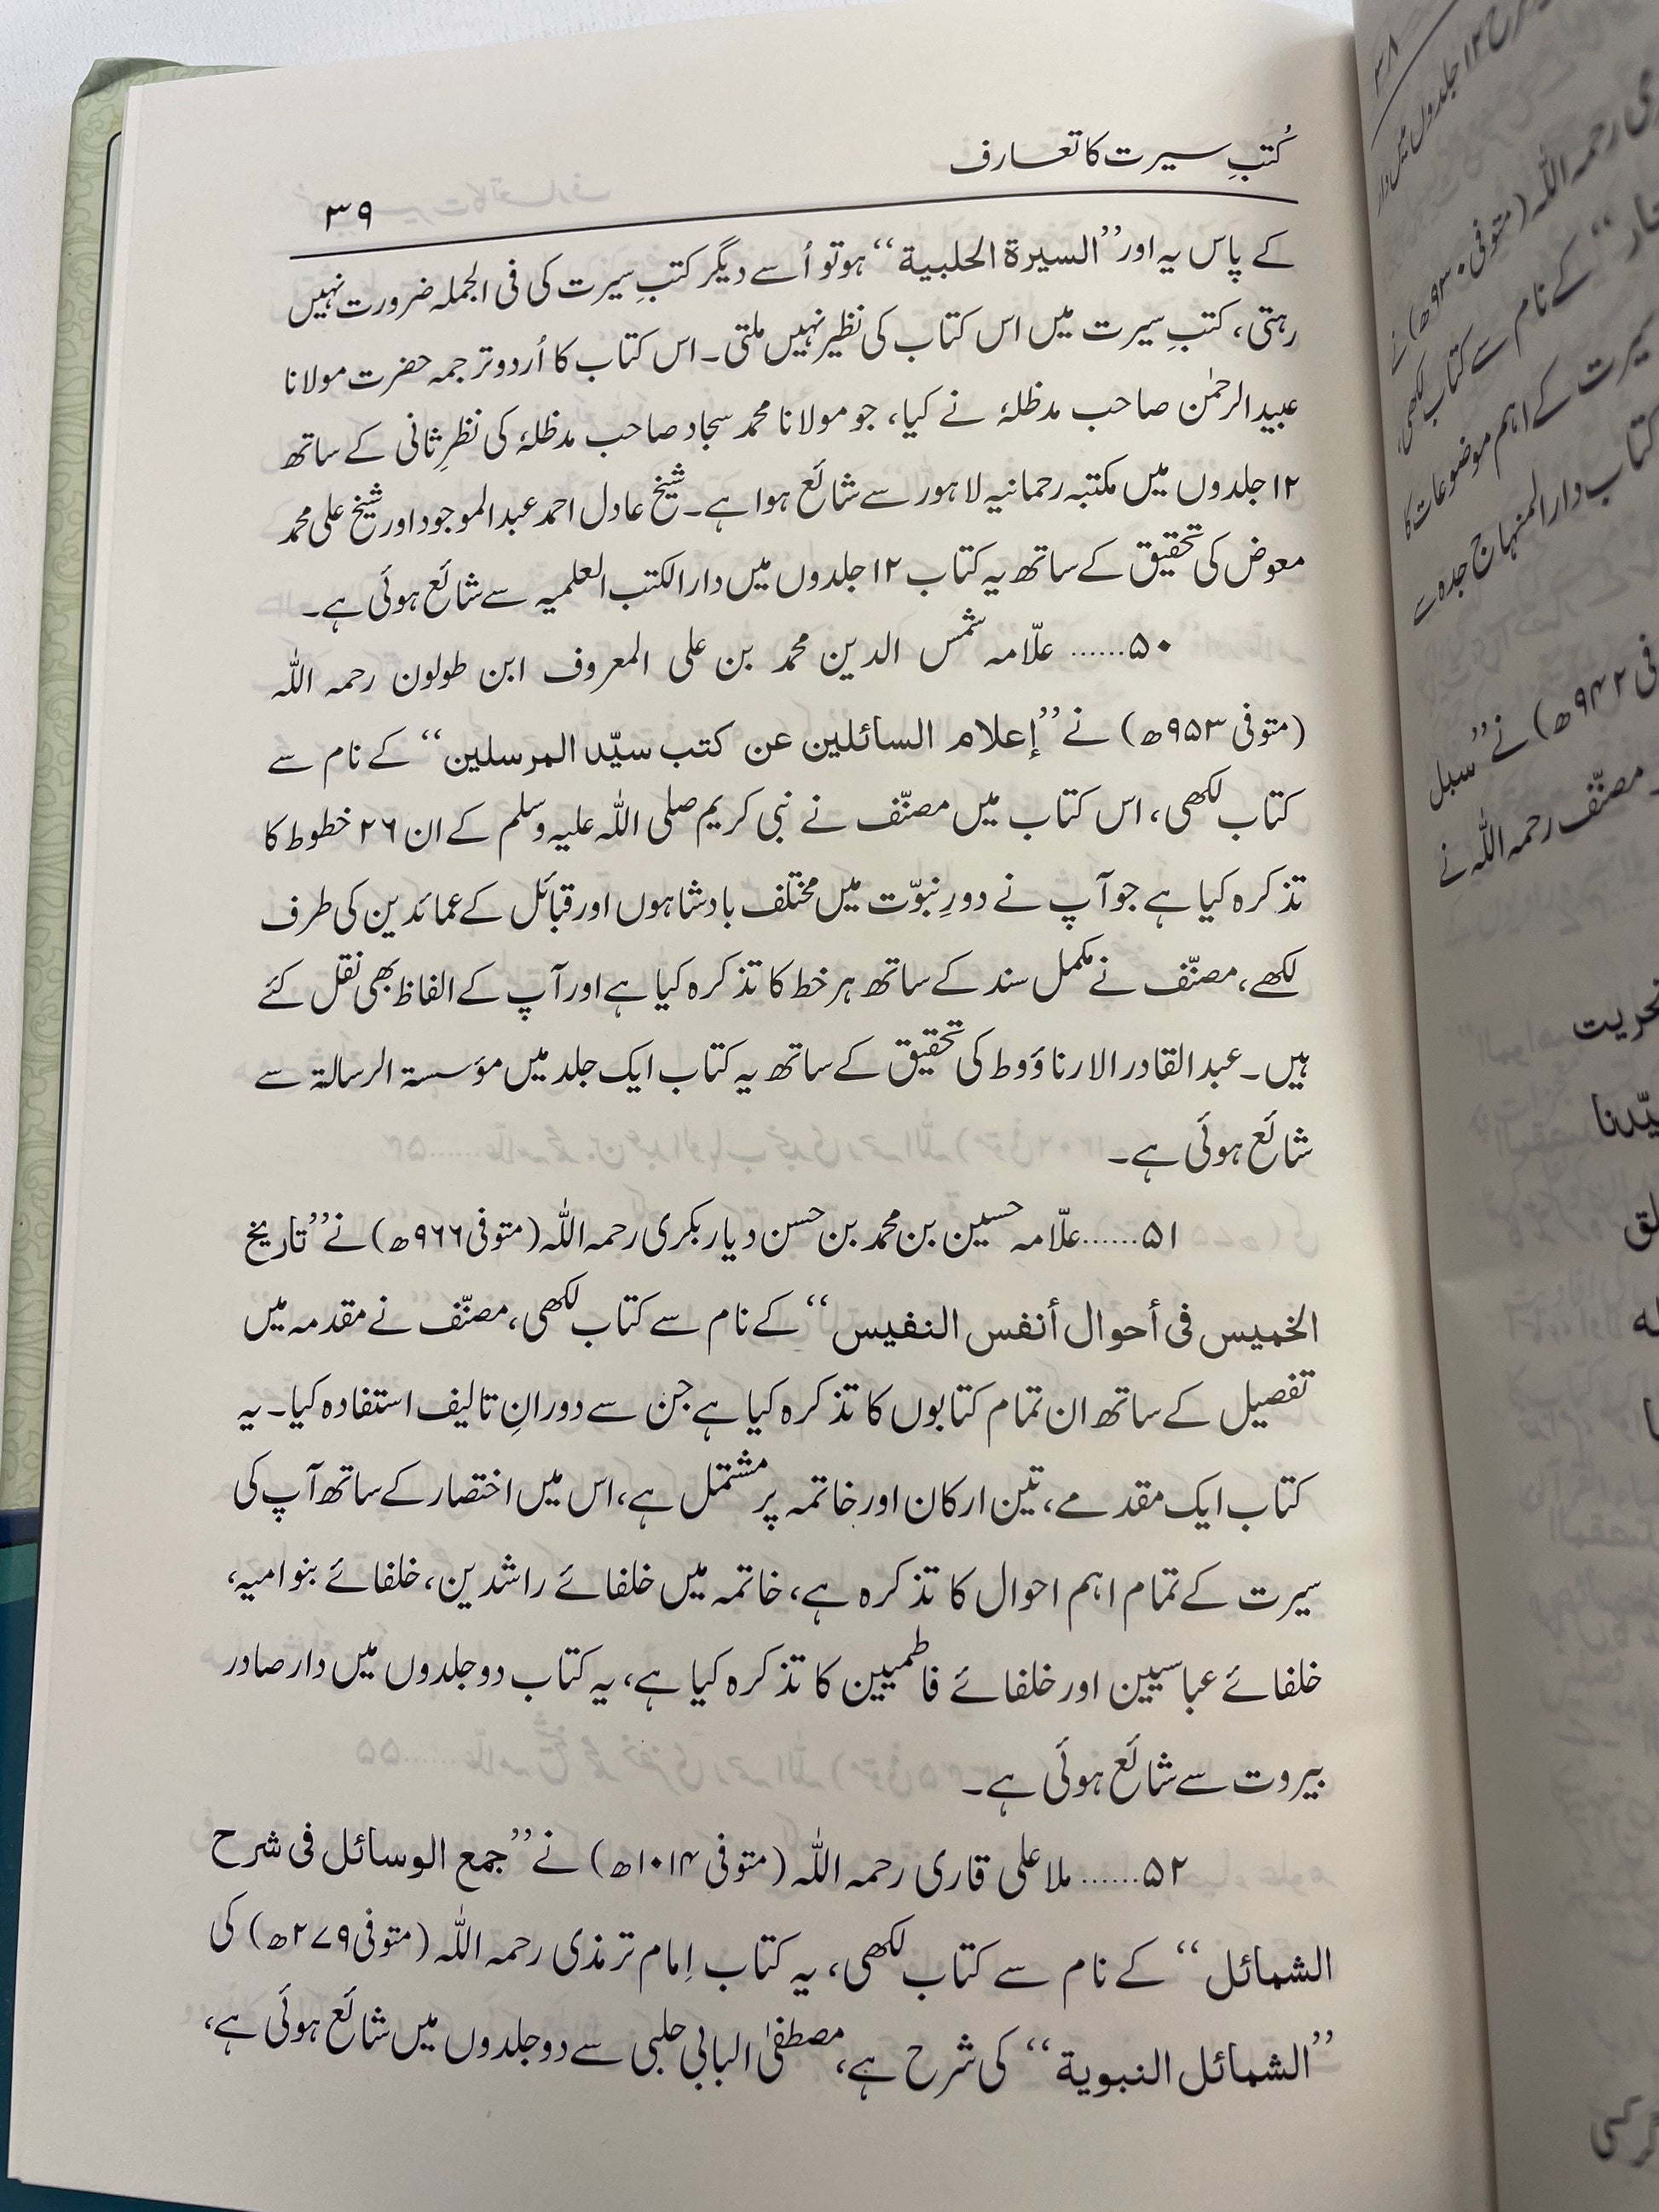 کُتبِ سیرت کا تعارف
۳۹
کے پاس یہ اور ”السیرۃ الحلبیۃ“ ہو تو اُسے دیگر کتبِ سیرت کی فی الجملہ ضرورت نہیں
رہتی، کتبِ سیرت میں اس کتاب کی نظیر نہیں ملتی۔ اس کتاب کا اُردو ترجمہ حضرت مولانا
عبید الرحمٰن صاحب مدظلہٗ نے کیا، جو مولانا محمد سجاد صاحب مدظلہٗ کی نظرِ ثانی کے ساتھ
۱۲ جلدوں میں مکتبہ رحمانیہ لاہور سے شائع ہوا ہے۔ شیخ عادل احمد عبد الموجود اور شیخ علی محمد
معوض کی تحقیق کے ساتھ یہ کتاب ۱۲ جلدوں میں دار الکتب العلمیہ سے شائع ہوئی ہے۔
۵۰...... علّامہ شمس الدین محمد بن علی المعروف ابن طولون رحمہ اللہ
(متوفی ۹۵۳ھ) نے ”إعلام السائلین عن کتب سیّد المرسلین“ کے نام سے
کتاب لکھی، اس کتاب میں مصنّف نے نبی کریم صلی اللہ علیہ وسلم کے ان ۲۶ خطوط کا
تذکرہ کیا ہے جو آپ نے دورِ نبوّت میں مختلف بادشاہوں اور قبائل کے عمائدین کی طرف
لکھے، مصنّف نے مکمل سند کے ساتھ ہر خط کا تذکرہ کیا ہے اور آپ کے الفاظ بھی نقل کئے
ہیں۔ عبد القادر الارناؤوط کی تحقیق کے ساتھ یہ کتاب ایک جلد میں مؤسسۃ الرسالۃ سے
شائع ہوئی ہے۔
۵۱...... علّامہ حسین بن محمد بن حسن دیار بکری رحمہ اللہ (متوفی ۹۶۶ھ) نے ”تاریخ
الخمیس فی أحوال أنفس النفیس“ کے نام سے کتاب لکھی، مصنّف نے مقدمہ میں
تفصیل کے ساتھ ان تمام کتابوں کا تذکرہ کیا ہے جن سے دورانِ تالیف استفادہ کیا۔ یہ
کتاب ایک مقدمے، تین ارکان اور خاتمہ پر مشتمل ہے، اس میں اختصار کے ساتھ آپ کی
سیرت کے تمام اہم احوال کا تذکرہ ہے، خاتمہ میں خلفائے راشدین، خلفائے بنو امیہ،
خلفائے عباسیین اور خلفائے فاطمیین کا تذکرہ کیا ہے، یہ کتاب دو جلدوں میں دار صادر
بیروت سے شائع ہوئی ہے۔
۵۲...... ملا علی قاری رحمہ اللہ (متوفی ۱۰۱۴ھ) نے ”جمع الوسائل فی شرح
الشمائل“ کے نام سے کتاب لکھی، یہ کتاب اِمام ترمذی رحمہ اللہ (متوفی ۲۷۹ھ) کی
”الشمائل النبویۃ“ کی شرح ہے، مصطفیٰ البابی حلبی سے دو جلدوں میں شائع ہوئی ہے،
۳۸
رحمہ اللہ (متوفی ۹۳۰ھ) نے
کے نام سے کتاب لکھی،
سیرت کے اہم موضوعات کا
کتاب دار المنہاج جدہ سے
۹۴۲ھ) نے ”سبل
مصنّف رحمہ اللہ نے